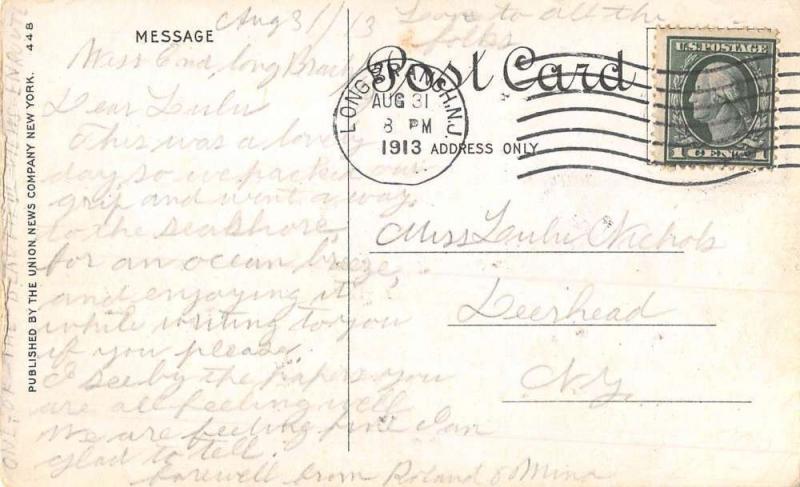 Aug 31/13 Love to all the
folks
MESSAGE
Post Card
U.S. POSTAGE
1 CENT 1
LONG BRANCH, N.J.
AUG 31
8 PM
1913
ADDRESS ONLY
West End, Long Branch
Dear Lulu
This was a lovely
day so we packed our
grip and went away
to the seashore,
for an ocean breeze,
and enjoying it
while writing to you
if you please.
I see by the papers you
are all feeling well
We are feeling fine I am
glad to tell.
Farewell from Roland & Mina
Miss Lulu Nichols
Deerhead
N.Y.
PUBLISHED BY THE UNION NEWS COMPANY NEW YORK.
448
ONE OF THE BEAUTIFUL